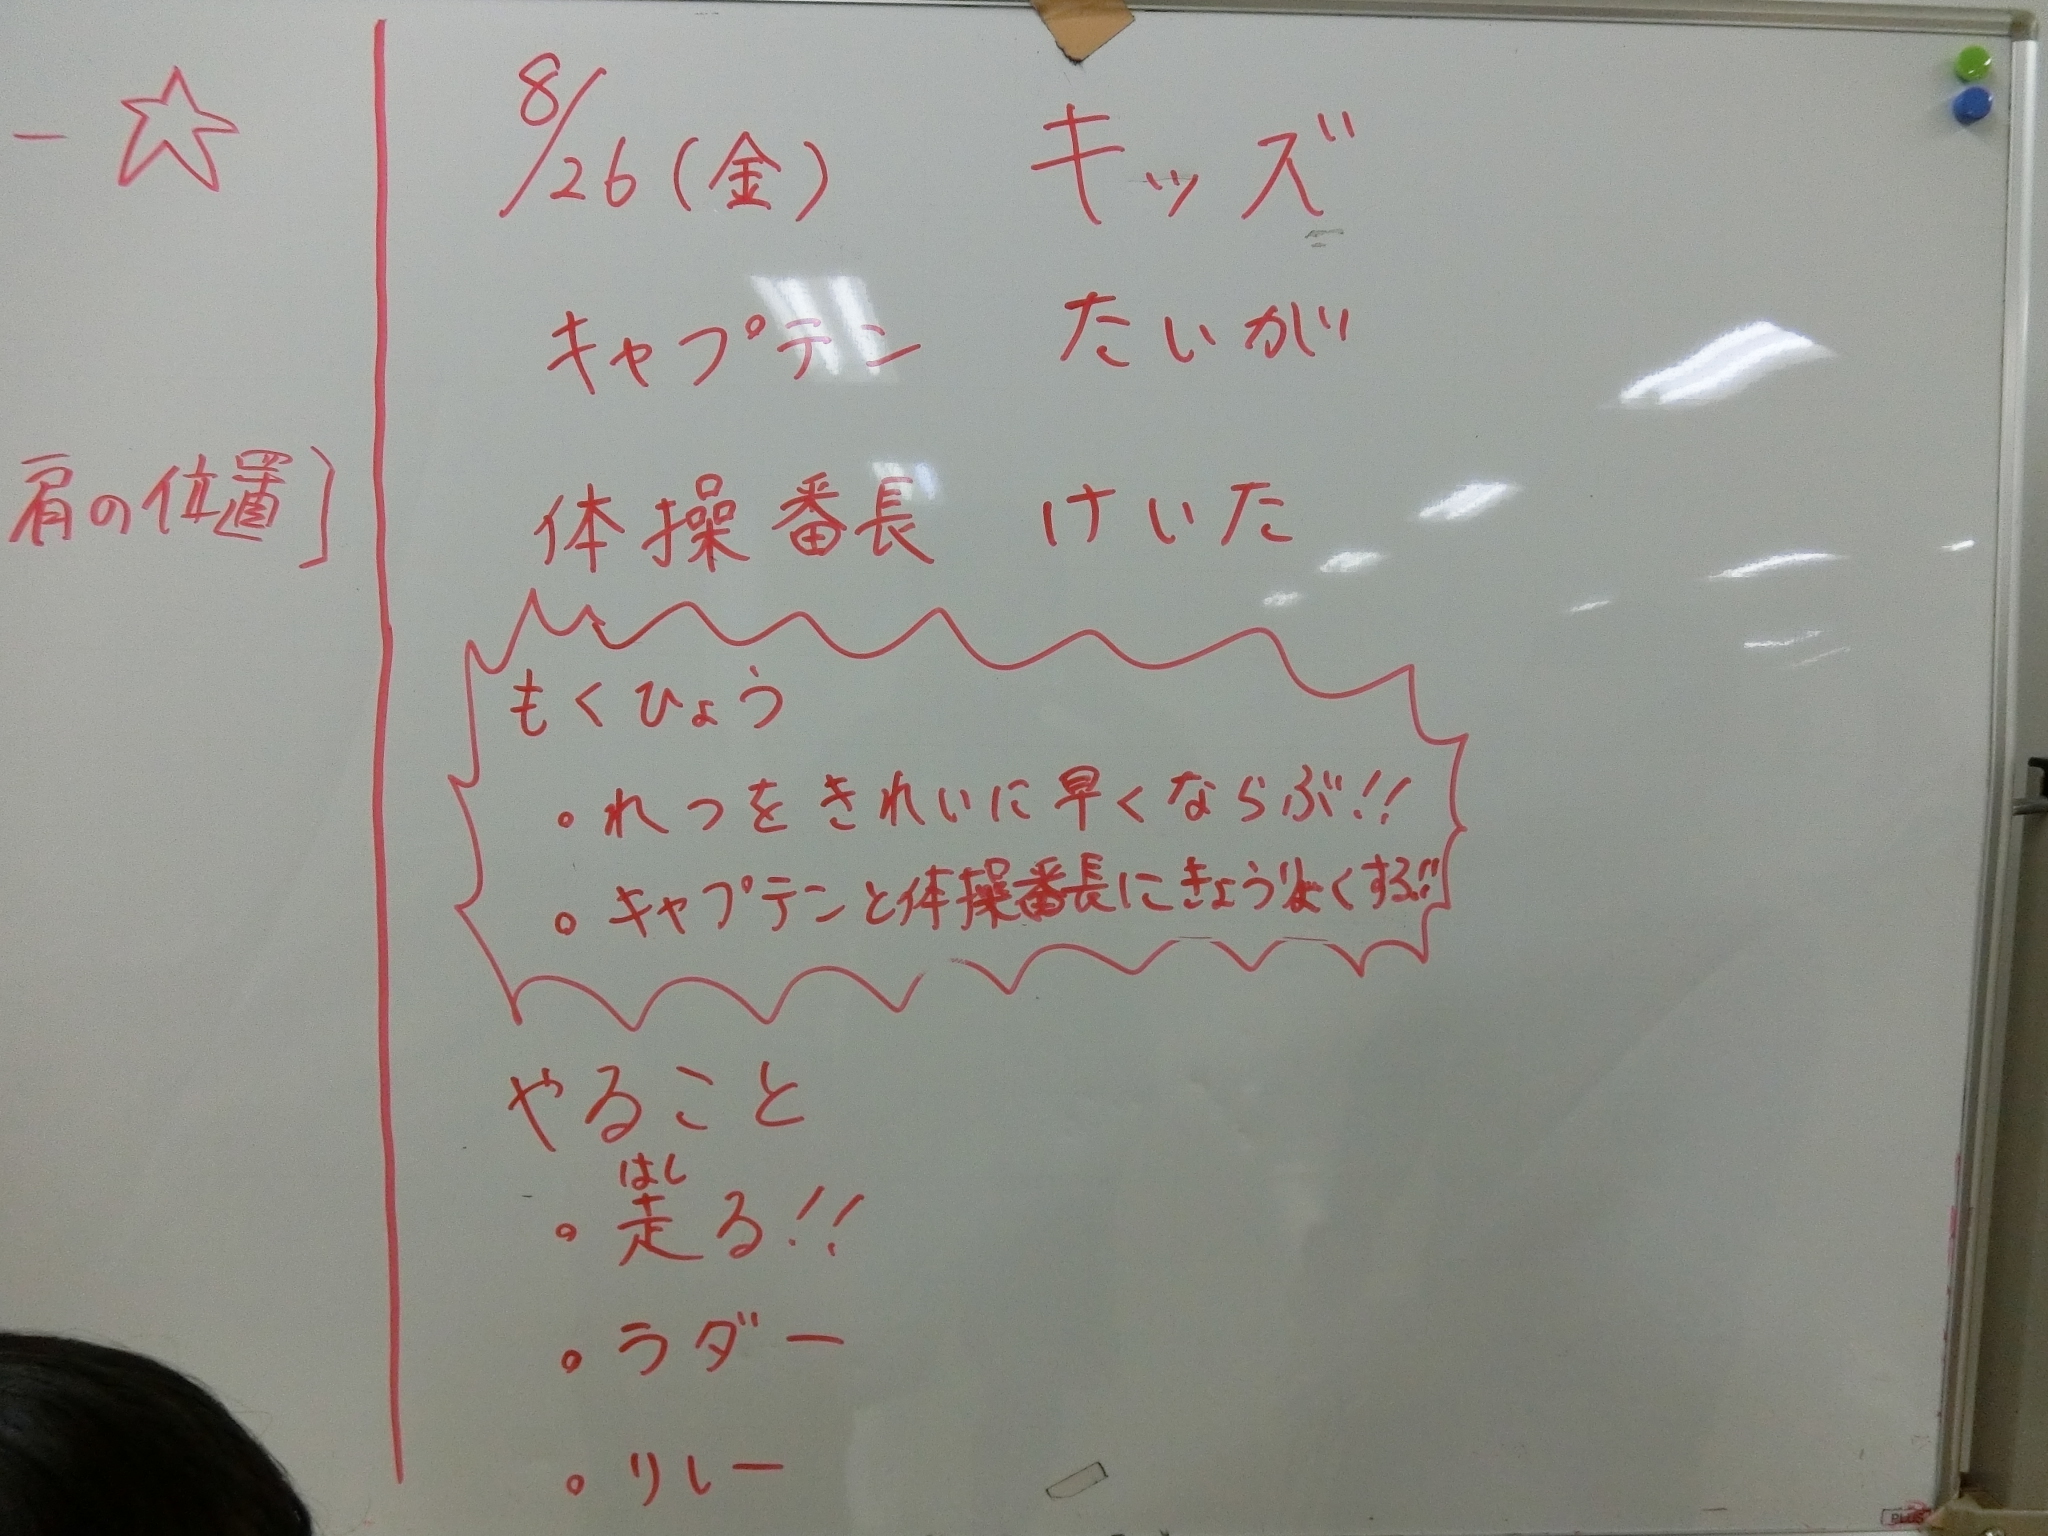 ー ☆
肩の位置]
8/26(金) キッズ
キャプテン たいが
体操番長 けいた
もくひょう
・れつをきれいに早くならぶ!!
・キャプテンと体操番長にきょうりょくする!!
やること
はし
・走る!!
・ラダー
・リレー
PLUS